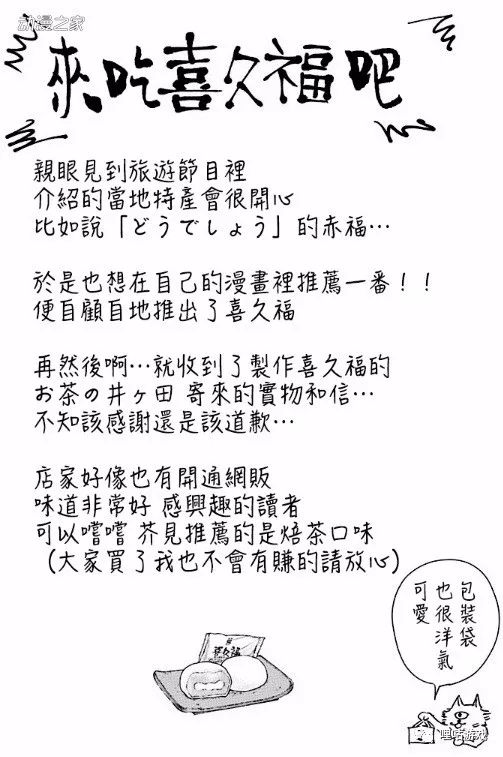 动漫之家
來吃喜久福吧
親眼見到旅遊節目裡
介紹的當地特產會很開心
比如說「どうでしょう」的赤福…
於是也想在自己的漫畫裡推薦一番！！
便自顧自地推出了喜久福
再然後啊…就收到了製作喜久福的
お茶の井ヶ田 寄來的實物和信…
不知該感謝還是該道歉…
店家好像也有開通網販
味道非常好 感興趣的讀者
可以嚐嚐 芥見推薦的是焙茶口味
(大家買了我也不會有賺的請放心)
包裝袋
也很洋氣
可愛
喜久福
哩咕游戏